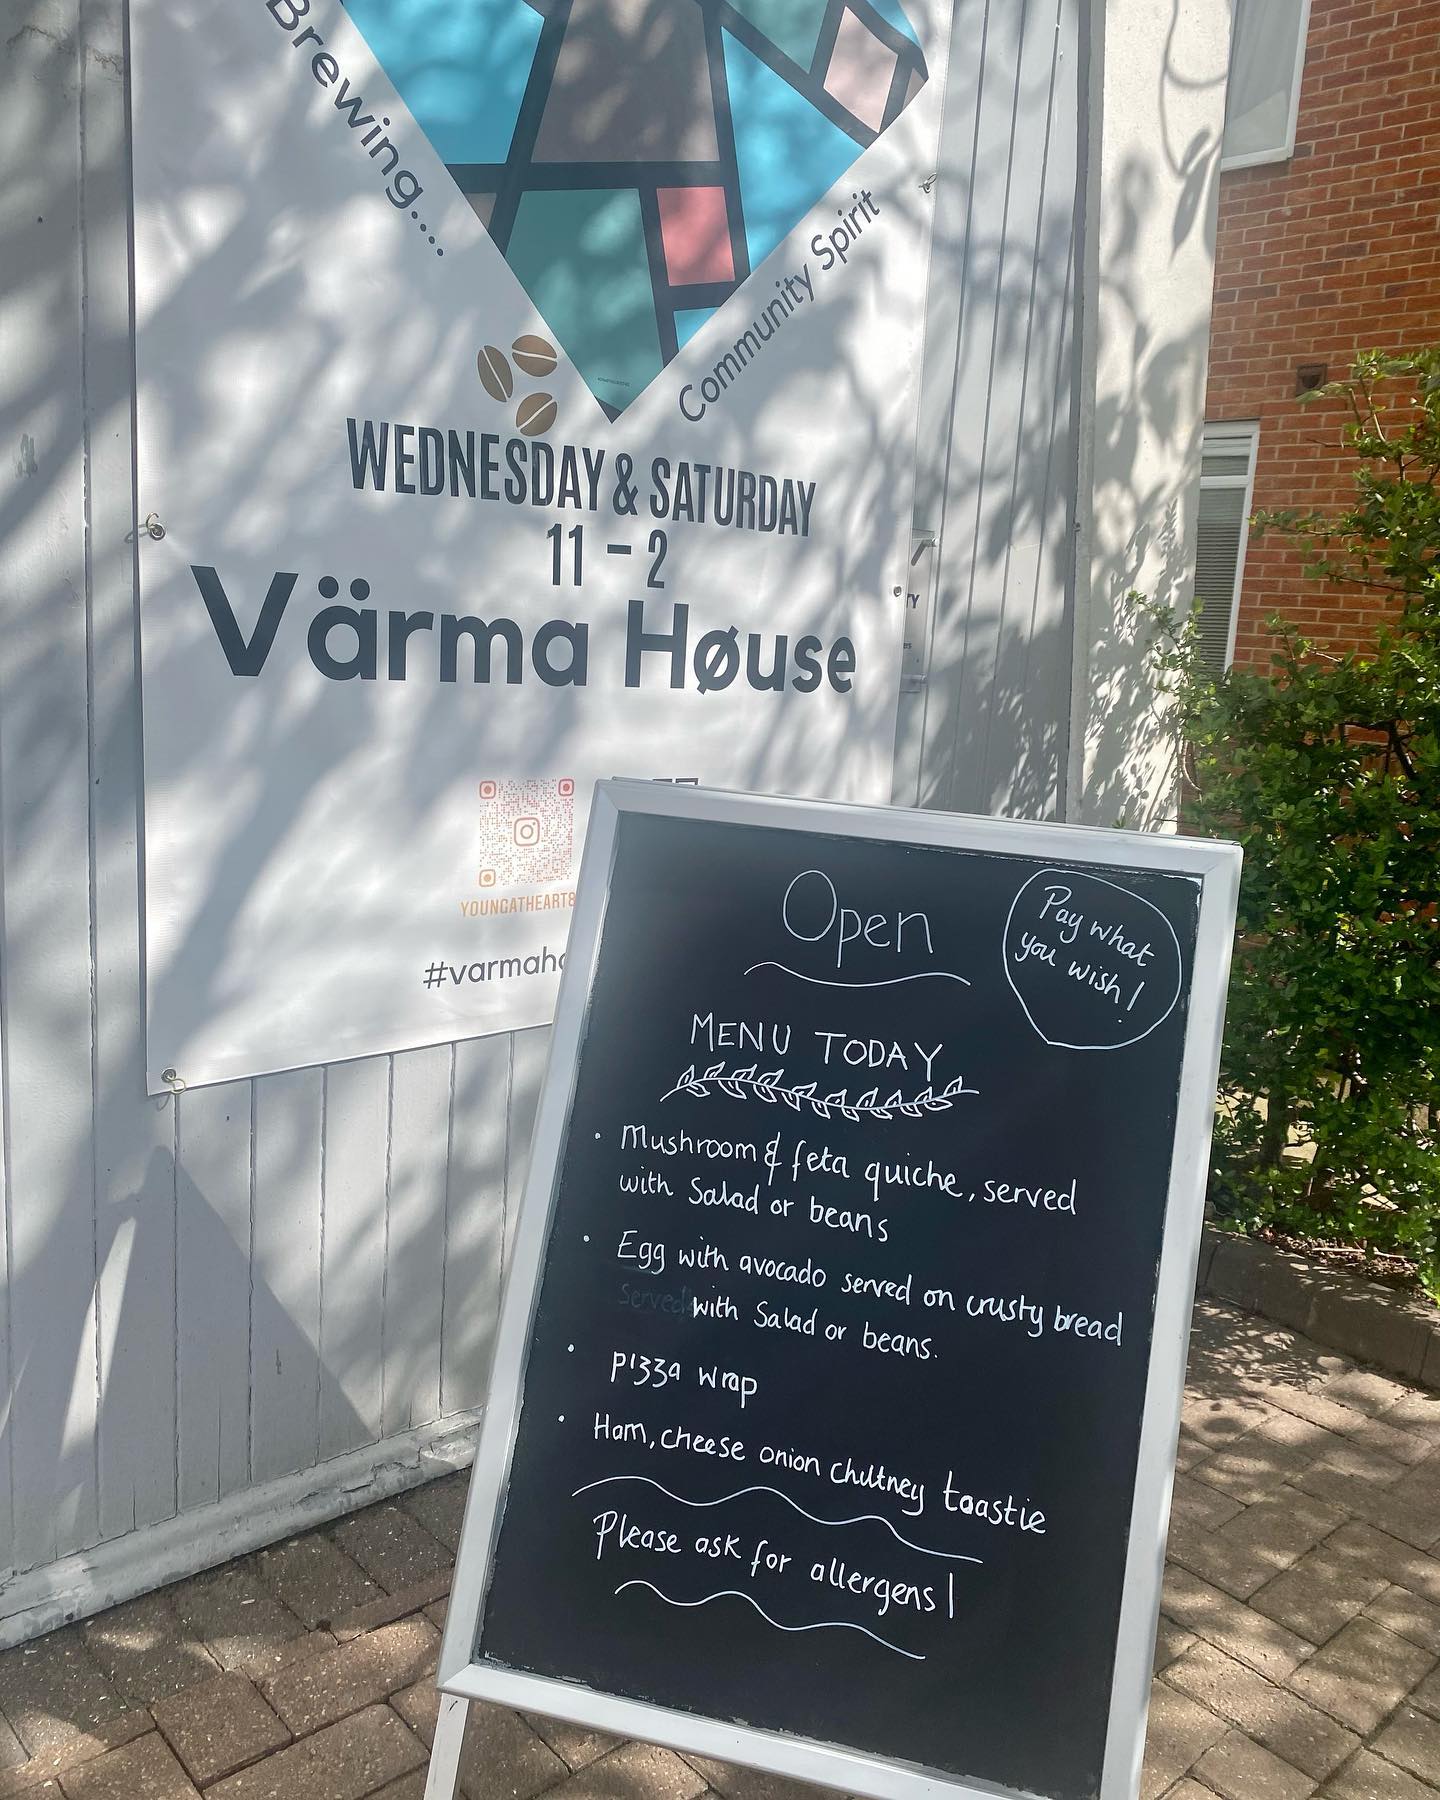 Brewing....
Community Spirit
WEDNESDAY & SATURDAY
11 - 2
Värma Høuse
YOUNGATHEART8
#varmaho
Open
Pay what
you wish!
MENU TODAY
• Mushroom & feta quiche, served
with Salad or beans
• Egg with avocado served on crusty bread
Served with Salad or beans.
• Pizza wrap
• Ham, cheese onion chutney toastie
Please ask for allergens!